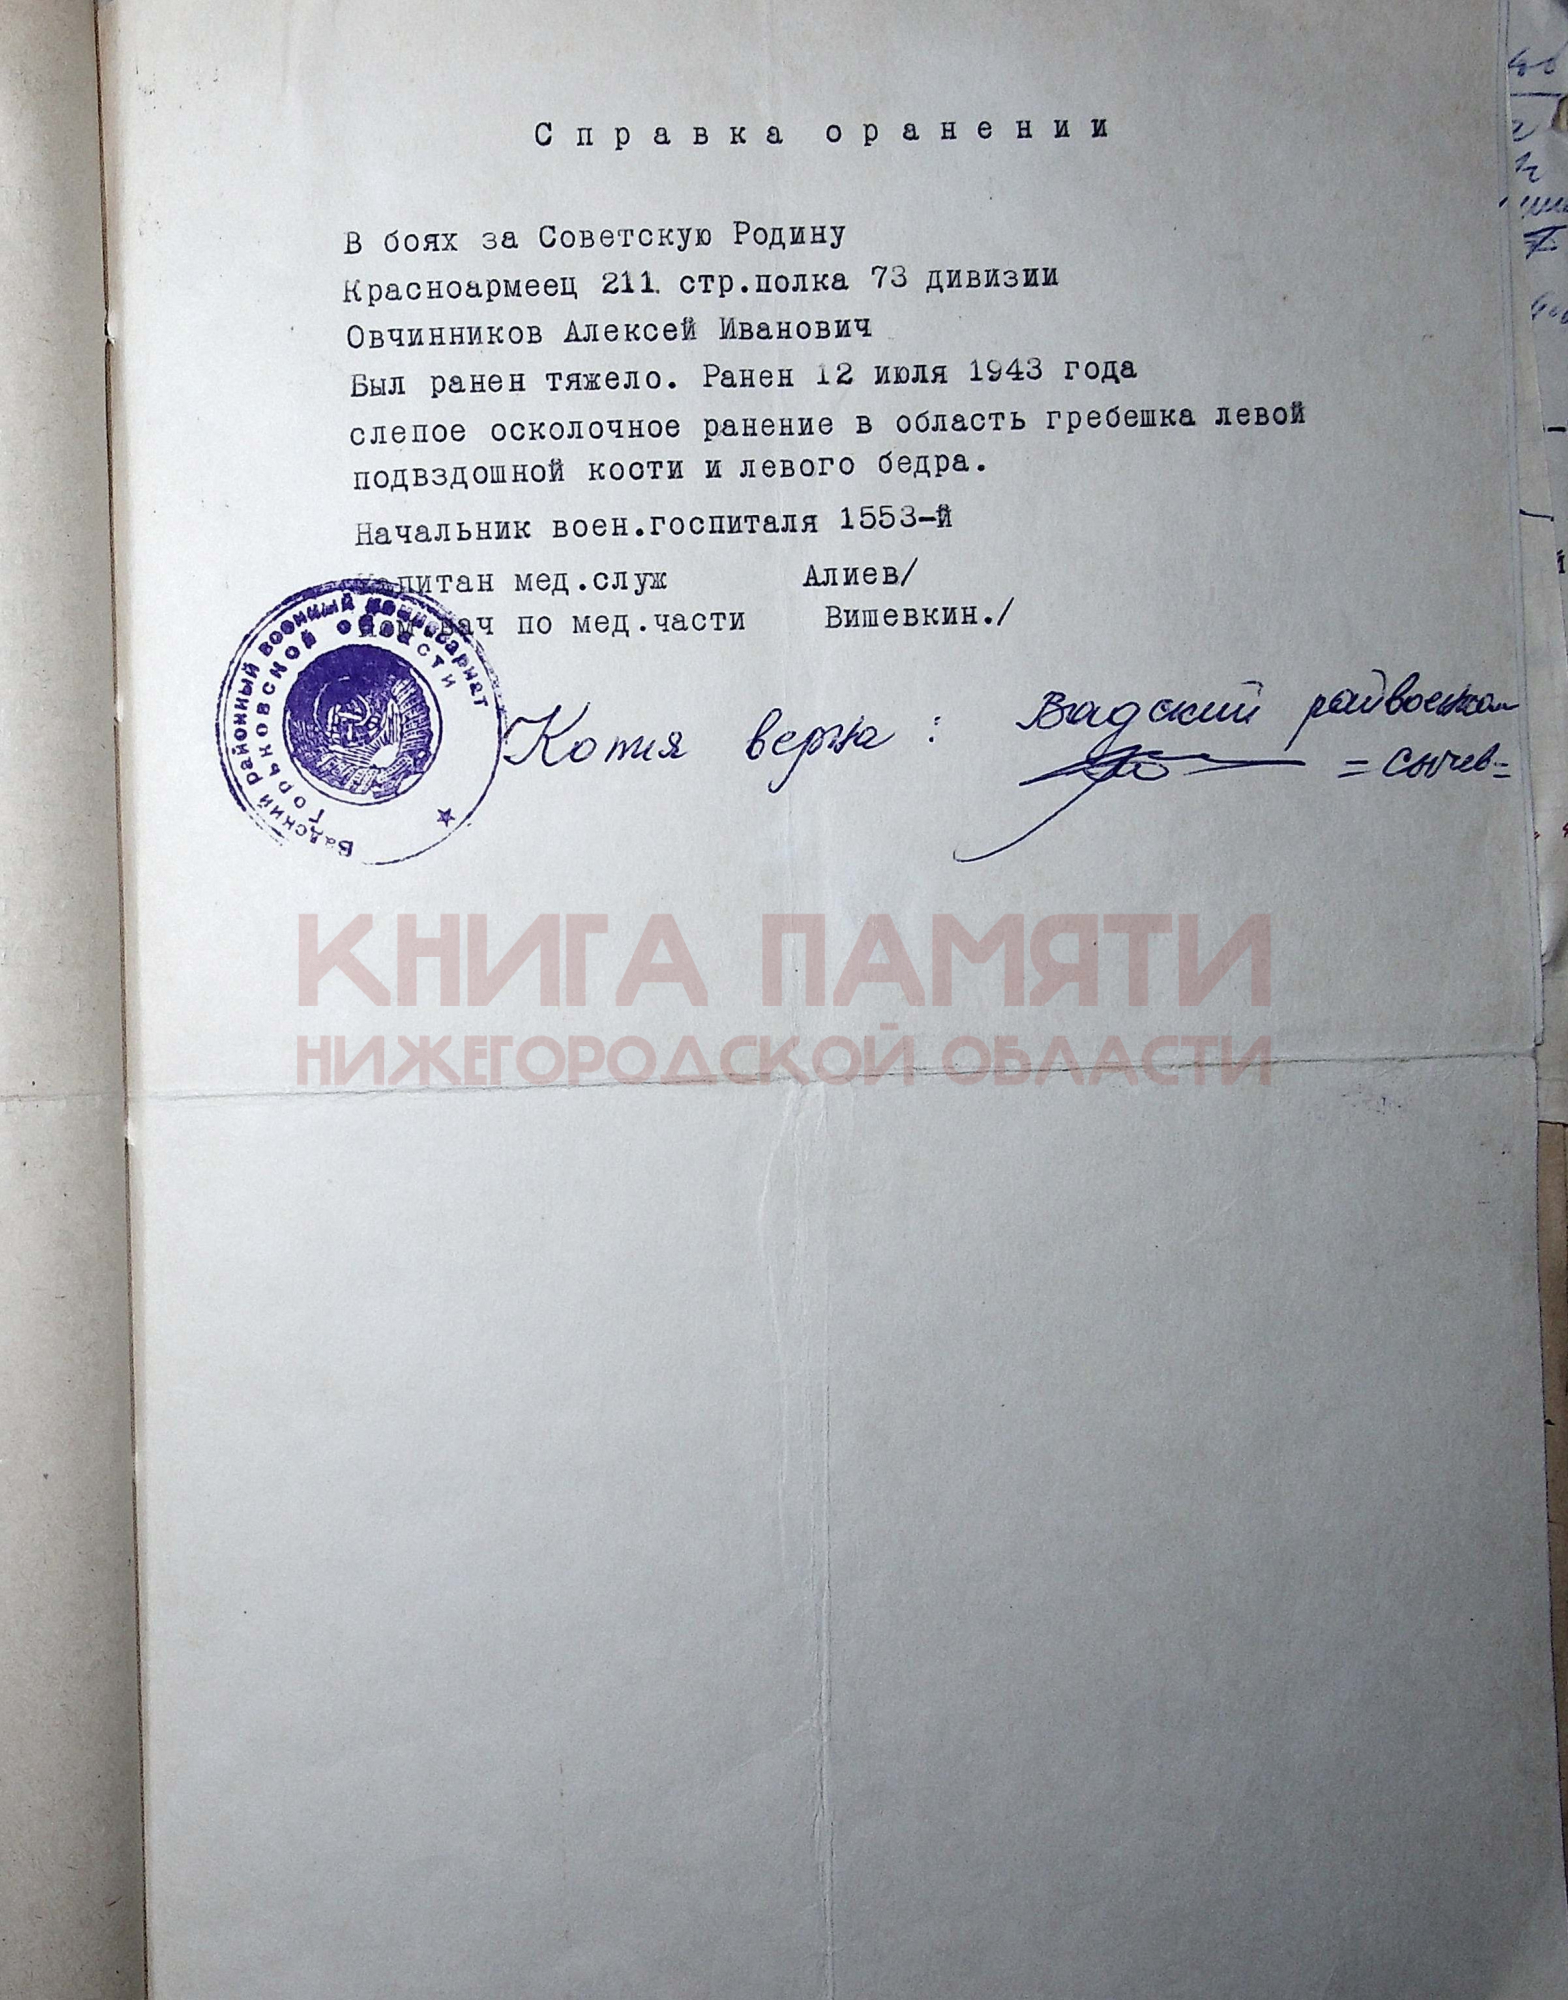 Справка оранении
В боях за Советскую Родину
Красноармеец 211 стр.полка 73 дивизии
Овчинников Алексей Иванович
Был ранен тяжело. Ранен 12 июля 1943 года
слепое осколочное ранение в область гребешка левой
подвздошной кости и левого бедра.
Начальник воен.госпиталя 1553-й
Капитан мед.служ Алиев/
по мед.части Вишевкин./
Вадский районный военный комиссариат
Горьковской области
Копия верна: Вадский райвоенком
=Сычев=
КНИГА ПАМЯТИ
НИЖЕГОРОДСКОЙ ОБЛАСТИ